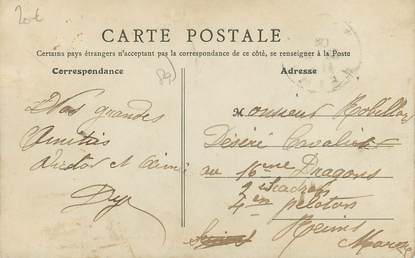 20€
CARTE POSTALE
Certains pays étrangers n'acceptant pas la correspondance de ce côté, se renseigner à la Poste
Correspondance
Adresse
Nos grandes
Amitiés
Monsieur Robillon
Désiré Cavalier
au 16eme Dragons
2 escadron
4em peloton
Reims
Marne